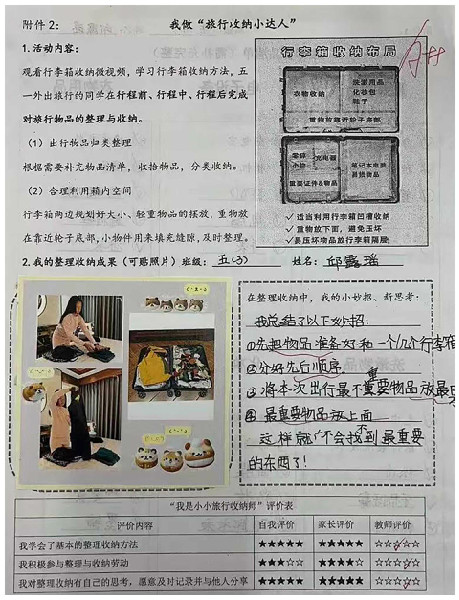 附件 2：
我做“旅行收纳小达人”
1.活动内容：
观看行李箱收纳微视频，学习行李箱收纳方法，五
一外出旅行的同学在行程前、行程中、行程后完成
对旅行物品的整理与收纳。
（1）出行物品归类整理
根据需要补充物品清单，收拾物品，分类收纳。
（2）合理利用箱内空间
行李箱两边规划好大小、轻重物品的摆放，重物放
在靠近轮子底部，小物件用来填充缝隙，及时整理。
行李箱收纳布局
衣物收纳
洗漱用品
化妆包
鞋子
重物放离开轮子底部
零碎
小物
充电器
笔记本电脑
易损物品
重要证件&物品
✓适当利用行李箱凹槽收纳
✓重物放下面，避免压坏
✓易压坏物品放行李箱隔层
2.我的整理收纳成果（可贴照片）班级：五(3)
姓名：邱露瑶
在整理收纳中，我的小妙招、新思考：
我总结了以下妙招：
①先把物品准备好和一个/几个行李箱
②分好先后顺序
③将本次出行最不重要物品放最
④最重要物品放上面
这样就不会找不到最重要
的东西了！
“我是小小旅行收纳师”评价表
评价内容 自我评价 家长评价 教师评价
我学会了基本的整理收纳方法 ★★★★★ ★★★★★ ☆☆☆☆☆
我积极参与整理与收纳劳动 ★★★☆☆ ★★★★☆ ☆☆☆☆☆
我对整理收纳有自己的思考，愿意及时记录并与他人分享 ★★★★★ ★★★★★ ☆☆☆☆☆